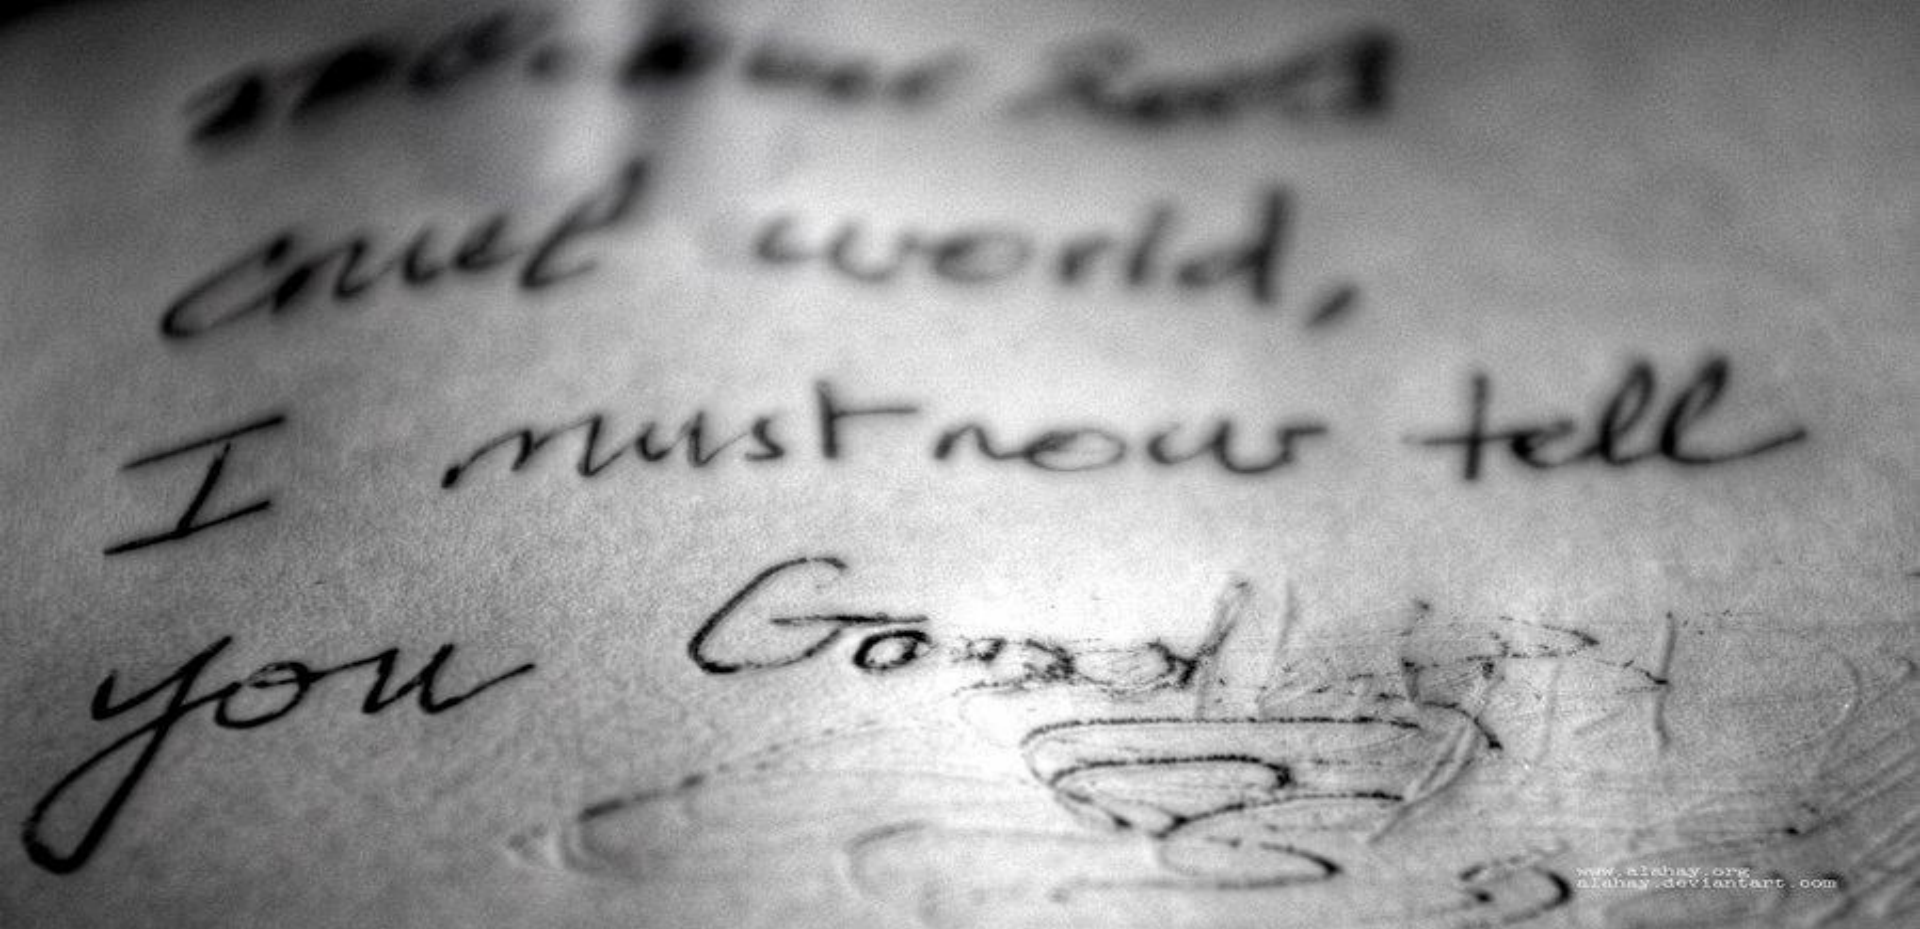 cruel world,
I must now tell
you Good
www.alahay.org
alahay.deviantart.com